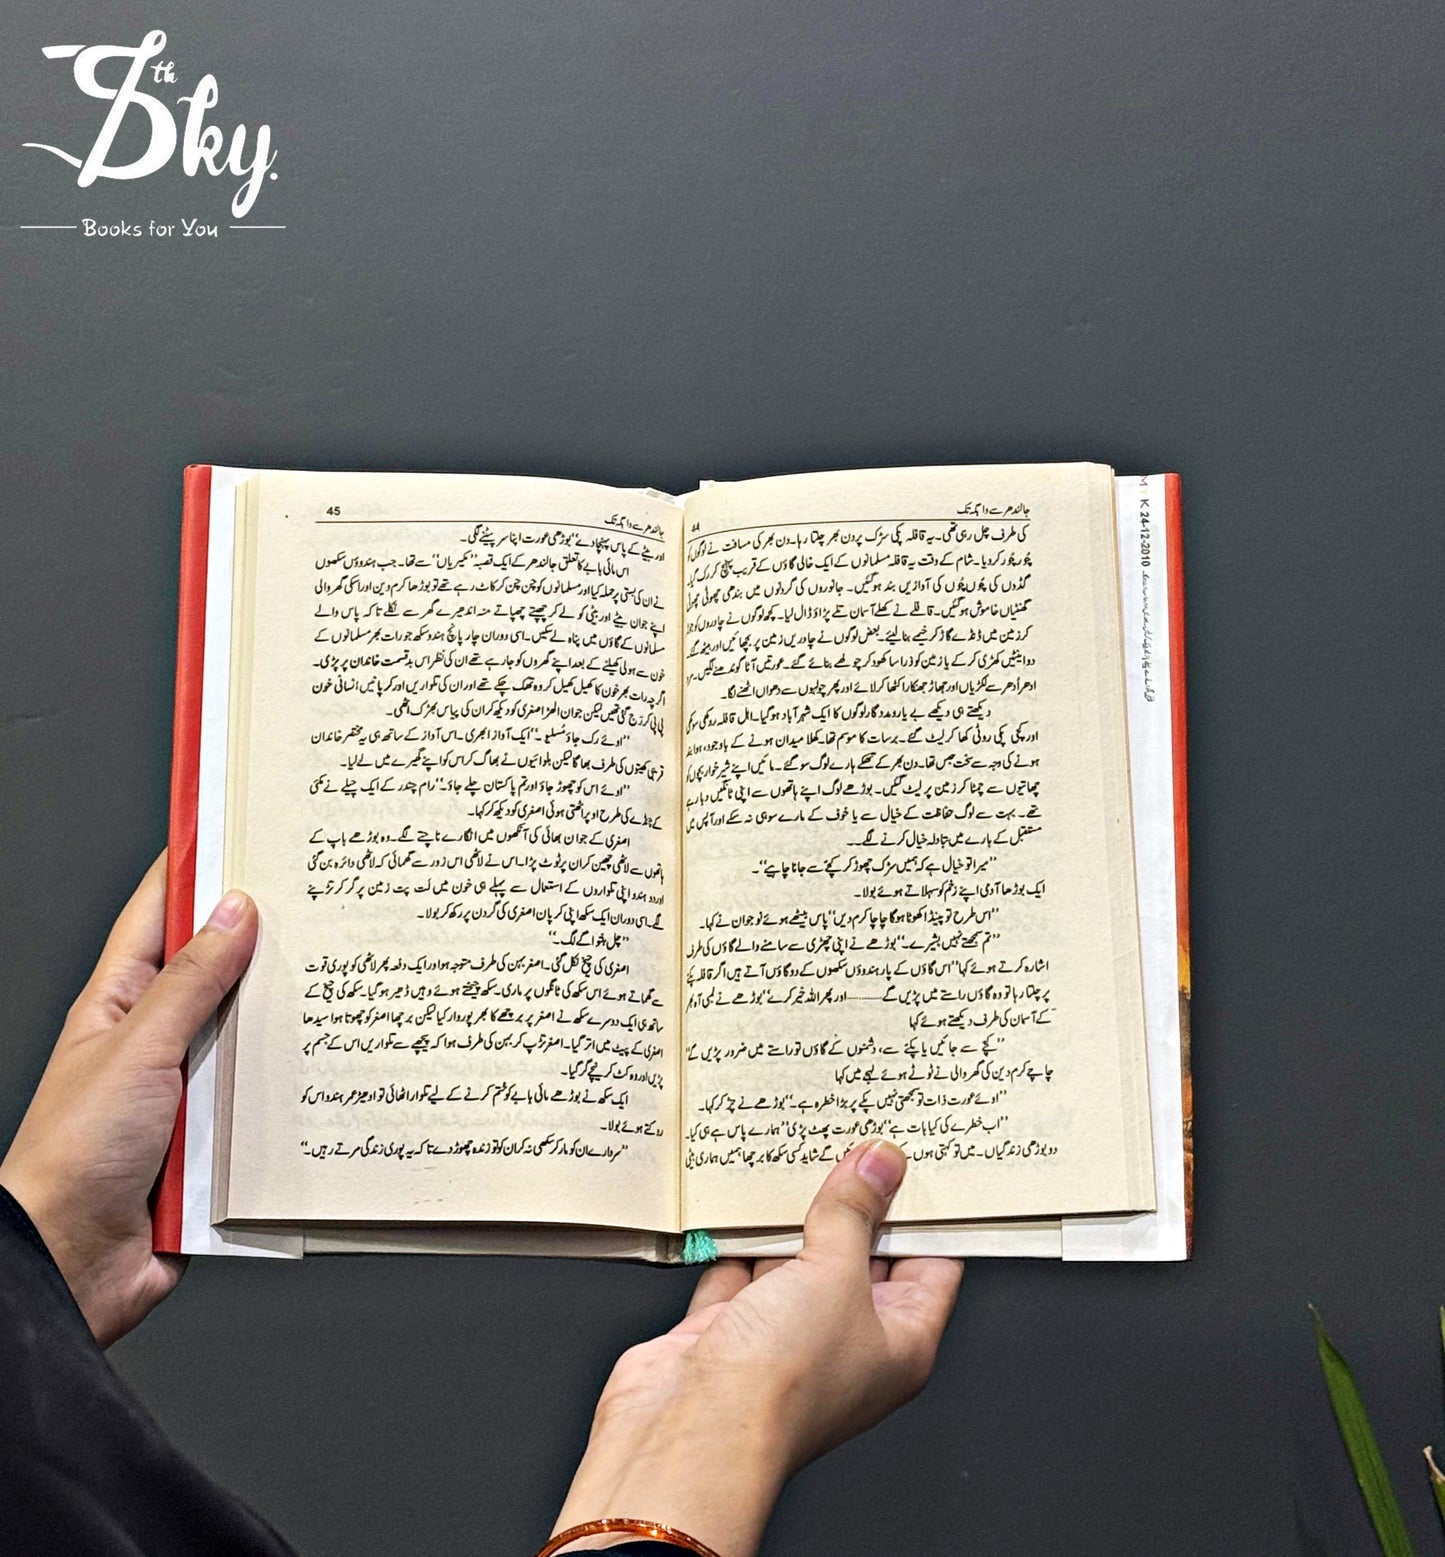 8th Sky.
Books for You
جالندھر سے واہگہ تک
44
کی طرف چل رہی تھی۔ یہ قافلہ پکی سڑک پر دن بھر چلتا رہا۔ دن بھر کی مسافت نے لوگوں کو
چُور چُور کر دیا۔ شام کے وقت یہ قافلہ مسلمانوں کے ایک خالی گاؤں کے قریب پہنچ کر رک گیا
گڈوں کی چُوں چُوں کی آوازیں بند ہو گئیں۔ جانوروں کی گردنوں میں بندھی چھوٹی چھوٹی
گھنٹیاں خاموش ہو گئیں۔ قافلے نے کھلے آسمان تلے پڑاؤ ڈال لیا۔ کچھ لوگوں نے چادروں کو جوڑ
کر زمین میں ڈنڈے گاڑ کر خیمے بنا لیئے۔ بعض لوگوں نے چادریں زمین پر بچھائیں اور بیٹھ گئے۔
دو اینٹیں کھڑی کر کے یا زمین کو ذرا سا کھود کر چولھے بنائے گئے۔ عورتیں آٹا گوندھنے لگیں۔ مرد
ادھر اُدھر سے لکڑیاں اور جھاڑ جھنکار اکٹھا کر لائے اور پھر چولہوں سے دھواں اٹھنے لگا۔
دیکھتے ہی دیکھے بے یارومددگار لوگوں کا ایک شہر آباد ہو گیا۔ اہل قافلہ روکھی سوکھی
اور کچی پکی روٹی کھا کر لیٹ گئے۔ برسات کا موسم تھا۔ کھلا میدان ہونے کے باوجود، ہوا بند
ہونے کی وجہ سے سخت حبس تھا۔ دن بھر کے تھکے ہارے لوگ سو گئے۔ مائیں اپنے شیر خوار بچوں کو
چھاتیوں سے چمٹا کر زمین پر لیٹ گئیں۔ بوڑھے لوگ اپنے ہاتھوں سے اپنی ٹانگیں دبا رہے
تھے۔ بہت سے لوگ حفاظت کے خیال سے یا خوف کے مارے سو ہی نہ سکے اور آپس میں
مستقبل کے بارے میں تبادلہ خیال کرنے لگے۔۔
’’میرا تو خیال ہے کہ ہمیں سڑک چھوڑ کر کچے سے جانا چاہیے‘‘۔
ایک بوڑھا آدمی اپنے زخم کو سہلاتے ہوئے بولا۔
’’اس طرح تو پینڈا کھوٹا ہوگا چاچا کرم دیں‘‘ پاس بیٹھے ہوئے نوجوان نے کہا۔
’’تم سمجھتے نہیں بشیرے۔‘‘ بوڑھے نے اپنی چھڑی سے سامنے والے گاؤں کی طرف
اشارہ کرتے ہوئے کہا ’’اس گاؤں کے پار ہندوؤں سکھوں کے دو گاؤں آتے ہیں اگر قافلہ پکے
پر چلتا رہا تو وہ گاؤں راستے میں پڑیں گے............اور پھر اللہ خیر کرے‘‘ بوڑھے نے لمبی آہ بھر
کے آسمان کی طرف دیکھتے ہوئے کہا
’’کچے سے جائیں یا پکئے سے، دشمنوں کے گاؤں تو راستے میں ضرور پڑیں گے‘‘
چاچے کرم دین کی گھر والی نے ٹوٹے ہوئے لہجے میں کہا
’’اوئے عورت ذات تو سمجھتی نہیں پکے پر بڑا خطرہ ہے۔‘‘ بوڑھے نے چڑ کر کہا۔
’’اب خطرے کی کیا بات ہے‘‘ بوڑھی عورت پھٹ پڑی ’’ہمارے پاس ہے ہی کیا۔
دو بوڑھی زندگیاں۔ میں تو کہتی ہوں گے شاید کسی سکھ کا برچھا ہمیں ہماری بیٹی
جالندھر سے واہگہ تک
45
اور بیٹے کے پاس پہنچا دے‘‘ بوڑھی عورت اپنا سر پیٹنے لگی۔
اس مائی بابے کا تعلق جالندھر کے ایک قصبہ ’’کیریاں‘‘ سے تھا۔ جب ہندوؤں سکھوں
نے ان کی بستی پر حملہ کیا اور مسلمانوں کو چن چن کر کاٹ رہے تھے تو بوڑھا کرم دین اور اسکی گھر والی
اپنے جوان بیٹے اور بیٹی کو لے کر چھپتے چھپاتے منہ اندھیرے گھر سے نکلے تاکہ پاس والے
مسلمانوں کے گاؤں میں پناہ لے سکیں۔ اسی دوران چار پانچ ہندو سکھ جو رات بھر مسلمانوں کے
خون سے ہولی کھیلنے کے بعد اپنے گھروں کو جا رہے تھے ان کی نظر اس بدقسمت خاندان پر پڑی۔
اگرچہ رات بھر خون کا کھیل کھیل کر وہ تھک چکے تھے اور ان کی تلواریں اور کرپانیں انسانی خون
پی پی کر رَج گئی تھیں لیکن جوان الھڑ اصغری کو دیکھ کر ان کی پیاس بھڑک اٹھی۔
’’اوئے رک جاؤ مُسلیو۔‘‘ ایک آواز ابھری۔ اس آواز کے ساتھ ہی یہ مختصر خاندان
قریبی کھیتوں کی طرف بھاگا لیکن بلوائیوں نے بھاگ کر اس کو اپنے گھیرے میں لے لیا۔
’’اوئے اس کو چھوڑ جاؤ اور تم پاکستان چلے جاؤ۔‘‘ رام چندر کے ایک چیلے نے مکئی
کے ٹانڈے کی طرح اوپر اٹھتی ہوئی اصغری کو دیکھ کر کہا۔
اصغری کے جوان بھائی کی آنکھوں میں انگارے ناچنے لگے۔ وہ بوڑھے باپ کے
ہاتھوں سے لاٹھی چھین کر ان پر ٹوٹ پڑا۔ اس نے لاٹھی اس زور سے گھمائی کہ لاٹھی دائرہ بن گئی
اور دو ہندو اپنی تلواروں کے استعمال سے پہلے ہی خون میں لَت پت زمین پر گر کر تڑپنے
لگے۔ اسی دوران ایک سکھ اپنی کرپان اصغری کی گردن پر رکھ کر بولا۔
’’چل بلوا گے لگ۔‘‘
اصغری کی چیخ نکل گئی۔ اصغر بہن کی طرف متوجہ ہوا اور ایک دفعہ پھر لاٹھی کو پوری قوت
سے گھماتے ہوئے اس سکھ کی ٹانگوں پر ماری۔ سکھ چیختے ہوئے وہیں ڈھیر ہو گیا۔ سکھ کی چیخ کے
ساتھ ہی ایک دوسرے سکھ نے اصغر پر برچھے کا بھرپور وار کیا لیکن برچھا اصغر کو چھوتا ہوا سیدھا
اصغری کے پیٹ میں اتر گیا۔ اصغر تڑپ کر بہن کی طرف ہوا کہ پیچھے سے تلواریں اس کے جسم پر
پڑیں اور وہ کٹ کر نیچے گر گیا۔
ایک سکھ نے بوڑھے مائی بابے کو ختم کرنے کے لیے تلوار اٹھائی تو ادھیڑ عمر ہندو اس کو
روکتے ہوئے بولا۔
’’سردارے ان کو مار کر سکھی نہ کر ان کو تو زندہ چھوڑ دے تاکہ یہ پوری زندگی مرتے رہیں۔‘‘
K 24-12-2010